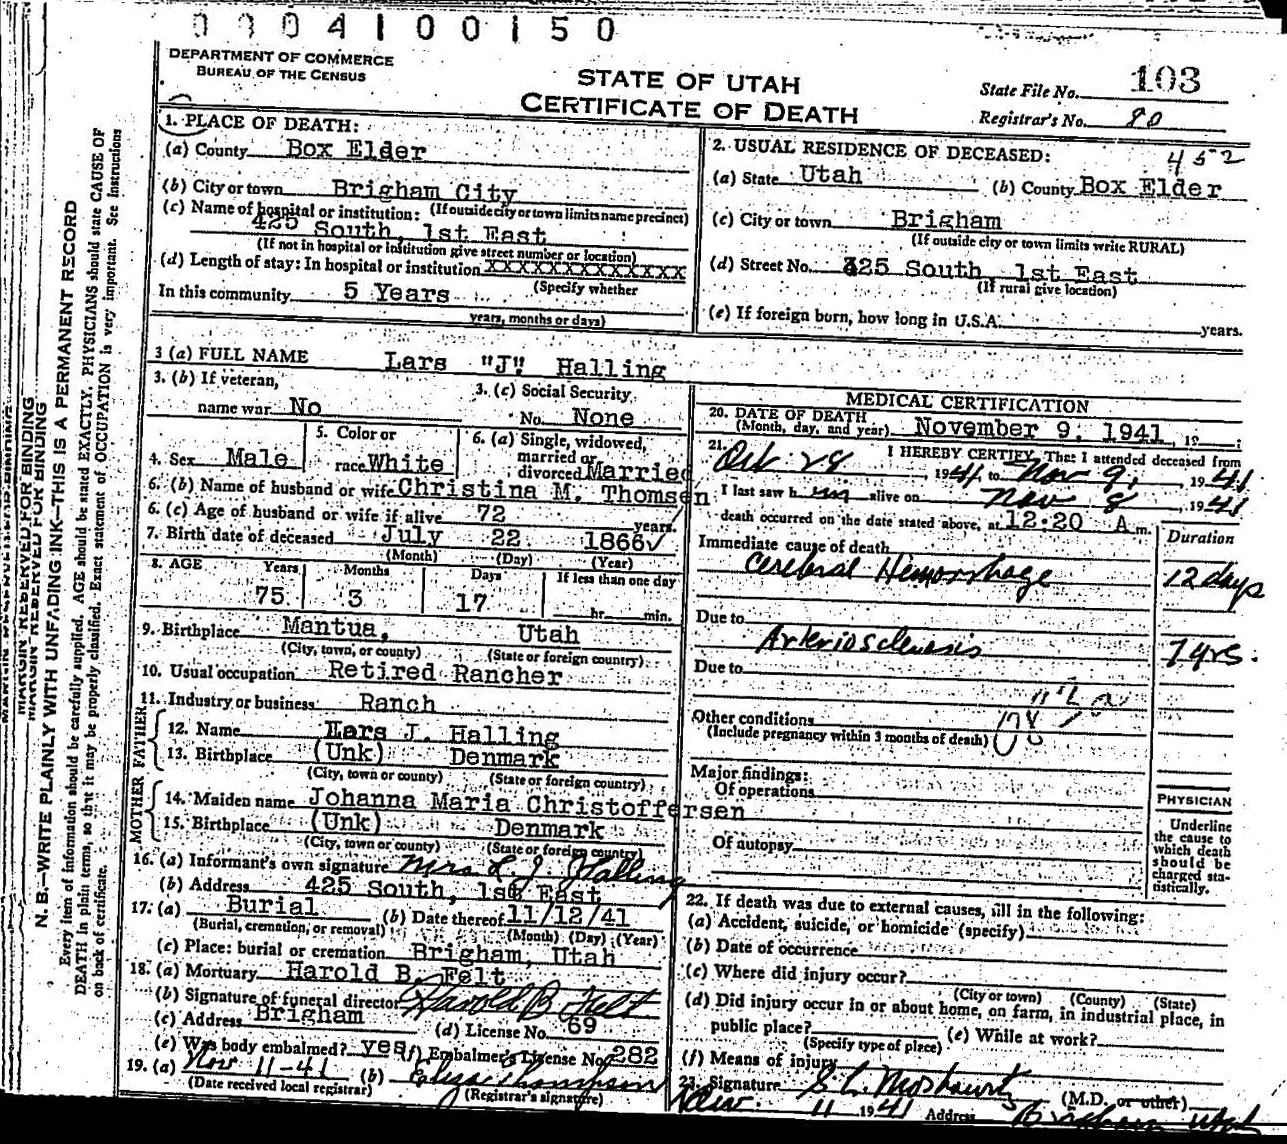 0 0 0 4 1 0 0 1 5 0
DEPARTMENT OF COMMERCE
BUREAU OF THE CENSUS
STATE OF UTAH
CERTIFICATE OF DEATH
State File No. 103
Registrar's No. 80
MARGIN RESERVED FOR BINDING
N. B.—WRITE PLAINLY WITH UNFADING INK—THIS IS A PERMANENT RECORD
Every item of information should be carefully supplied. AGE should be stated EXACTLY. PHYSICIANS should state CAUSE OF
DEATH in plain terms, so that it may be properly classified. Exact statement of OCCUPATION is very important. See instructions
on back of certificate.
1. PLACE OF DEATH:
(a) County Box Elder
(b) City or town Brigham City
(If outside city or town limits name precinct)
(c) Name of hospital or institution:
425 South, 1st East
(If not in hospital or institution give street number or location)
(d) Length of stay: In hospital or institution XXXXXXXXXXXXX
(Specify whether
In this community 5 Years
years, months or days)
2. USUAL RESIDENCE OF DECEASED: 452
(a) State Utah (b) County Box Elder
(c) City or town Brigham
(If outside city or town limits write RURAL)
(d) Street No. 425 South, 1st East
(If rural give location)
(e) If foreign born, how long in U.S.A. years.
3 (a) FULL NAME Lars "J" Halling
3. (b) If veteran,
name war No
3. (c) Social Security
No. None
4. Sex Male
5. Color or
race White
6. (a) Single, widowed,
married or
divorced Married
6. (b) Name of husband or wife Christina M. Thomsen
6. (c) Age of husband or wife if alive 72 years.
7. Birth date of deceased July 22 1866
(Month) (Day) (Year)
8. AGE Years Months Days If less than one day
75 3 17 hr. min.
9. Birthplace Mantua, Utah
(City, town, or county) (State or foreign country)
10. Usual occupation Retired Rancher
11. Industry or business Ranch
FATHER
12. Name Lars J. Halling
13. Birthplace (Unk) Denmark
(City, town or county) (State or foreign country)
MOTHER
14. Maiden name Johanna Maria Christoffersen
15. Birthplace (Unk) Denmark
(City, town or county) (State or foreign country)
16. (a) Informant's own signature Mrs L. J. Halling
(b) Address 425 South, 1st East
17. (a) Burial (b) Date thereof 11/12/41
(Burial, cremation, or removal) (Month) (Day) (Year)
(c) Place: burial or cremation Brigham, Utah
18. (a) Mortuary Harold B. Felt
(b) Signature of funeral director Harold B Felt
(c) Address Brigham (d) License No. 69
(e) Was body embalmed? yes (f) Embalmer's License No. 282
19. (a) Nov 11-41 (b) Eliza Thompson
(Date received local registrar) (Registrar's signature)
MEDICAL CERTIFICATION
20. DATE OF DEATH
(Month, day, and year) November 9, 1941, 19 ;
21. I HEREBY CERTIFY, That I attended deceased from
Oct. 28, 1941 to Nov 9, 1941
I last saw him alive on Nov 8, 1941
death occurred on the date stated above, at 12:20 A m.
Duration
Immediate cause of death
Cerebral Hemorrhage 12 days
Due to
Arteriosclerosis 7 yrs.
Due to
Other conditions
(Include pregnancy within 3 months of death)
Major findings:
Of operations
Of autopsy
PHYSICIAN
Underline
the cause to
which death
should be
charged sta-
tistically.
22. If death was due to external causes, fill in the following:
(a) Accident, suicide, or homicide (specify)
(b) Date of occurrence
(c) Where did injury occur?
(City or town) (County) (State)
(d) Did injury occur in or about home, on farm, in industrial place, in
public place? (e) While at work?
(Specify type of place)
(f) Means of injury
23. Signature
(M.D. or other)
11 1941 Address Brigham Utah